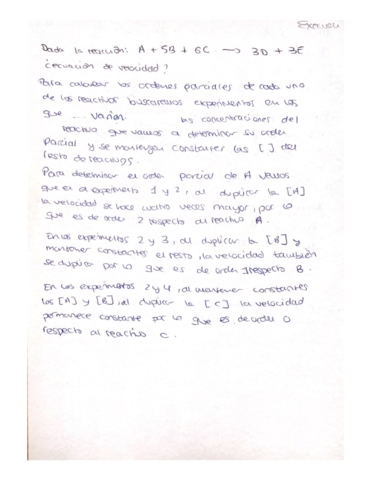 Dada la reacción: A + 5B + 6C → 3D + 3E
¿ecuación de velocidad?
Para calcular los ordenes parciales de cada uno
de los reactivos buscaremos experimentos en los
que ... varian las concentraciones del
reactivo que vamos a determinar su orden
Parcial y se mantengan constantes las [ ] del
resto de reactivos.
Para determinar el orden parcial de A vemos
que en experimento 1 y 2, al duplicar la [A]
la velocidad se hace cuatro veces mayor, por lo
que es de orden 2 respecto al reactivo A.
En los experimentos 2 y 3, al duplicar la [B] y
mantener constantes el resto, la velocidad también
se duplica por lo que es de orden 1 respecto B.
En los experimentos 2 y 4, al mantener constantes
los [A] y [B], al duplicar la [C] la velocidad
permanece constante por lo que es de orden 0
respecto al reactivo C.